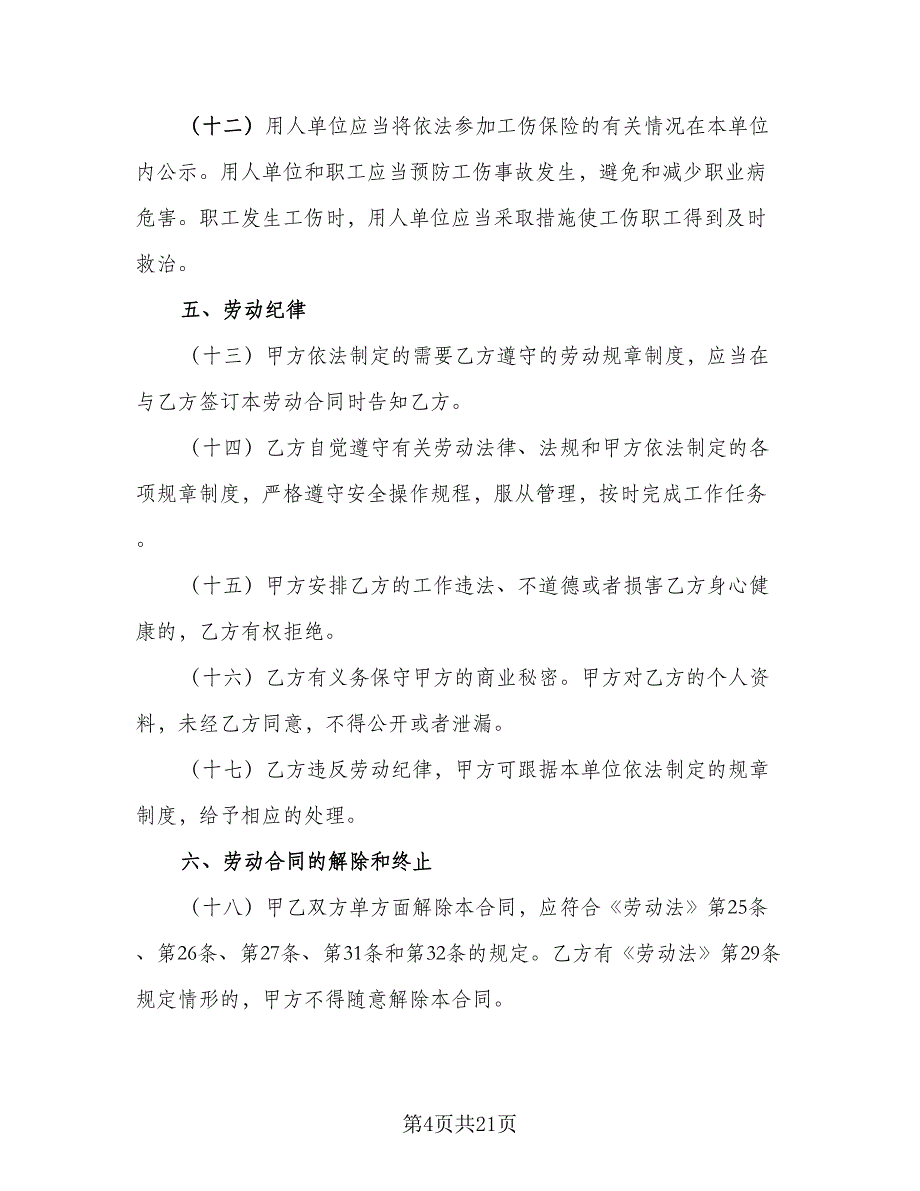 （十二）用人单位应当将依法参加工伤保险的有关情况在本单位
内公示。用人单位和职工应当预防工伤事故发生，避免和减少职业病
危害。职工发生工伤时，用人单位应当采取措施使工伤职工得到及时
救治。
五、劳动纪律
（十三）甲方依法制定的需要乙方遵守的劳动规章制度，应当在
与乙方签订本劳动合同时告知乙方。
（十四）乙方自觉遵守有关劳动法律、法规和甲方依法制定的各
项规章制度，严格遵守安全操作规程，服从管理，按时完成工作任务
。
（十五）甲方安排乙方的工作违法、不道德或者损害乙方身心健
康的，乙方有权拒绝。
（十六）乙方有义务保守甲方的商业秘密。甲方对乙方的个人资
料，未经乙方同意，不得公开或者泄漏。
（十七）乙方违反劳动纪律，甲方可跟据本单位依法制定的规章
制度，给予相应的处理。
六、劳动合同的解除和终止
（十八）甲乙双方单方面解除本合同，应符合《劳动法》第25条
、第26条、第27条、第31条和第32条的规定。乙方有《劳动法》第29条
规定情形的，甲方不得随意解除本合同。
第4页共21页